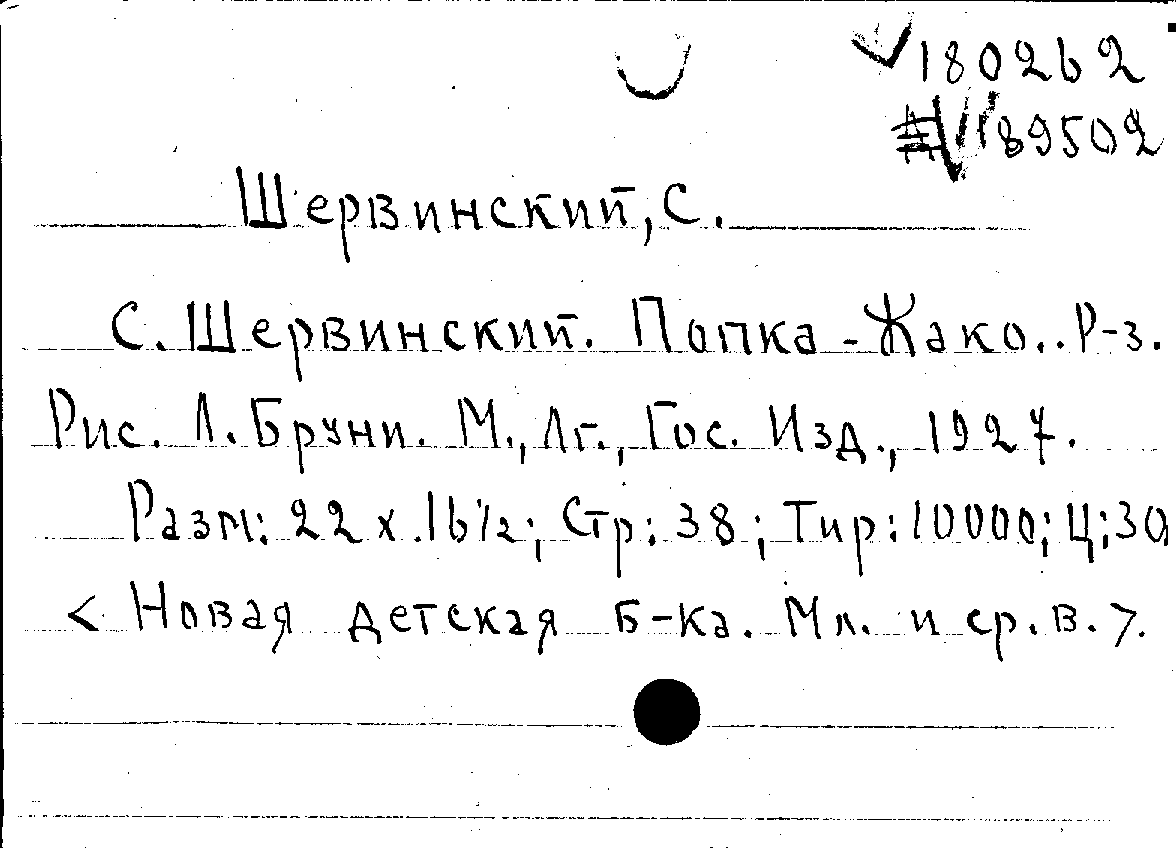 180262
189502
Шервинский, С.
С. Шервинский. Попка - Жако.. Р-з.
Рис. Л. Бруни. М., Лг., Гос. Изд., 1927.
Разм: 22 х 16 1/2; Стр: 38; Тир: 10000; Ц: 30
< Новая детская Б-ка. Мл. и ср. в. >.